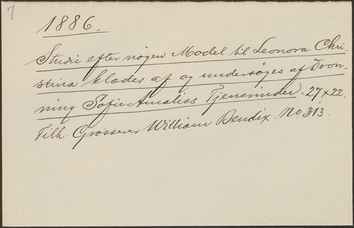 7
1886.
Studie efter nøgen Model til Leonora Chri-
stina klædes af og undersøges af Dron-
ning Sofie Amalies Tjenerinder. 27 x 22.
Tilh. Grosserer William Bendix. No 313.